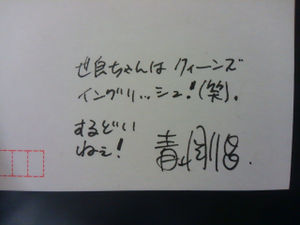 世良ちゃんは クイーンズ
イングリッシュ!(笑).
するどい
ねェ!
青山剛昌.